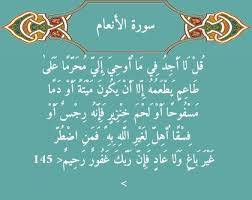 سورة الأنعام
قُلْ لَا أَجِدُ فِي مَا أُوحِيَ إِلَيَّ مُحَرَّمًا عَلَىٰ
طَاعِمٍ يَطْعَمُهُ إِلَّا أَنْ يَكُونَ مَيْتَةً أَوْ دَمًا
مَسْفُوحًا أَوْ لَحْمَ خِنْزِيرٍ فَإِنَّهُ رِجْسٌ أَوْ
فِسْقًا أُهِلَّ لِغَيْرِ اللَّهِ بِهِ فَمَنِ اضْطُرَّ
غَيْرَ بَاغٍ وَلَا عَادٍ فَإِنَّ رَبَّكَ غَفُورٌ رَحِيمٌ< 145
>